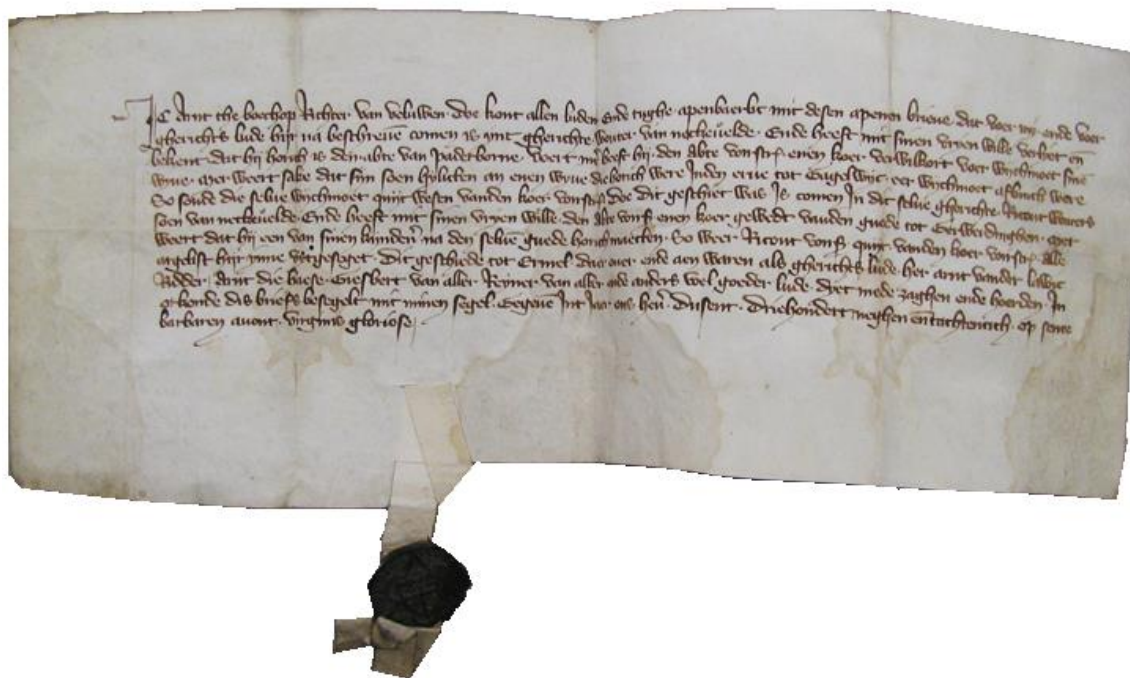 Ic Arnt the boechop Richter van veluwen doe kont allen luden ende tughe apenbaerlic mit desen apenen brieue dat voer my ende voer
gherichts lude hijr na bescreuen comen is int gherichte Wouter van neckeuelde Ende heeft mit sinen vryen wille verliet en̄
bekent dat hij horich is den abte van paderborne voert so heeft hij den Abte vors enen koer verwilkort voer wychmoet sine
wyue mer weert sake dat sijn soen hylicten an enen wyue die horich were inden erue tot Engelwijc eer wychmoet afliuich were
So soude die selue wychmoet quijt wesen vanden koer vors doe dit geschiet was Is comen In dit selue gherichte Ricout wouters
soen van neckeuelde Ende heeft mit sinen vryen wille den Abte vors enen koer gewedt vanden guede tot Gerwerdinghen mer
weert dat hij een van sinen kynderen na den seluen guede horich maecten So weer Ricout vors quijt vanden koer vors Alle
argelist hijr ynne vutgeseget Dit geschiede tot Ermel daer ouer ende aen waren als gherichts lude her arnt vander lawic
Ridder Arnt die haese Giesbert van aller Reyner van aller ende anders wel goeder lude diet mede zaghen ende hoerden In
orkonde dis briefs besegelt mit minen segel Gegeuen Int iaer ons heren Dusent driehondert neghen en̄ tachtentich op sente
barbaren auont virginis gloriose